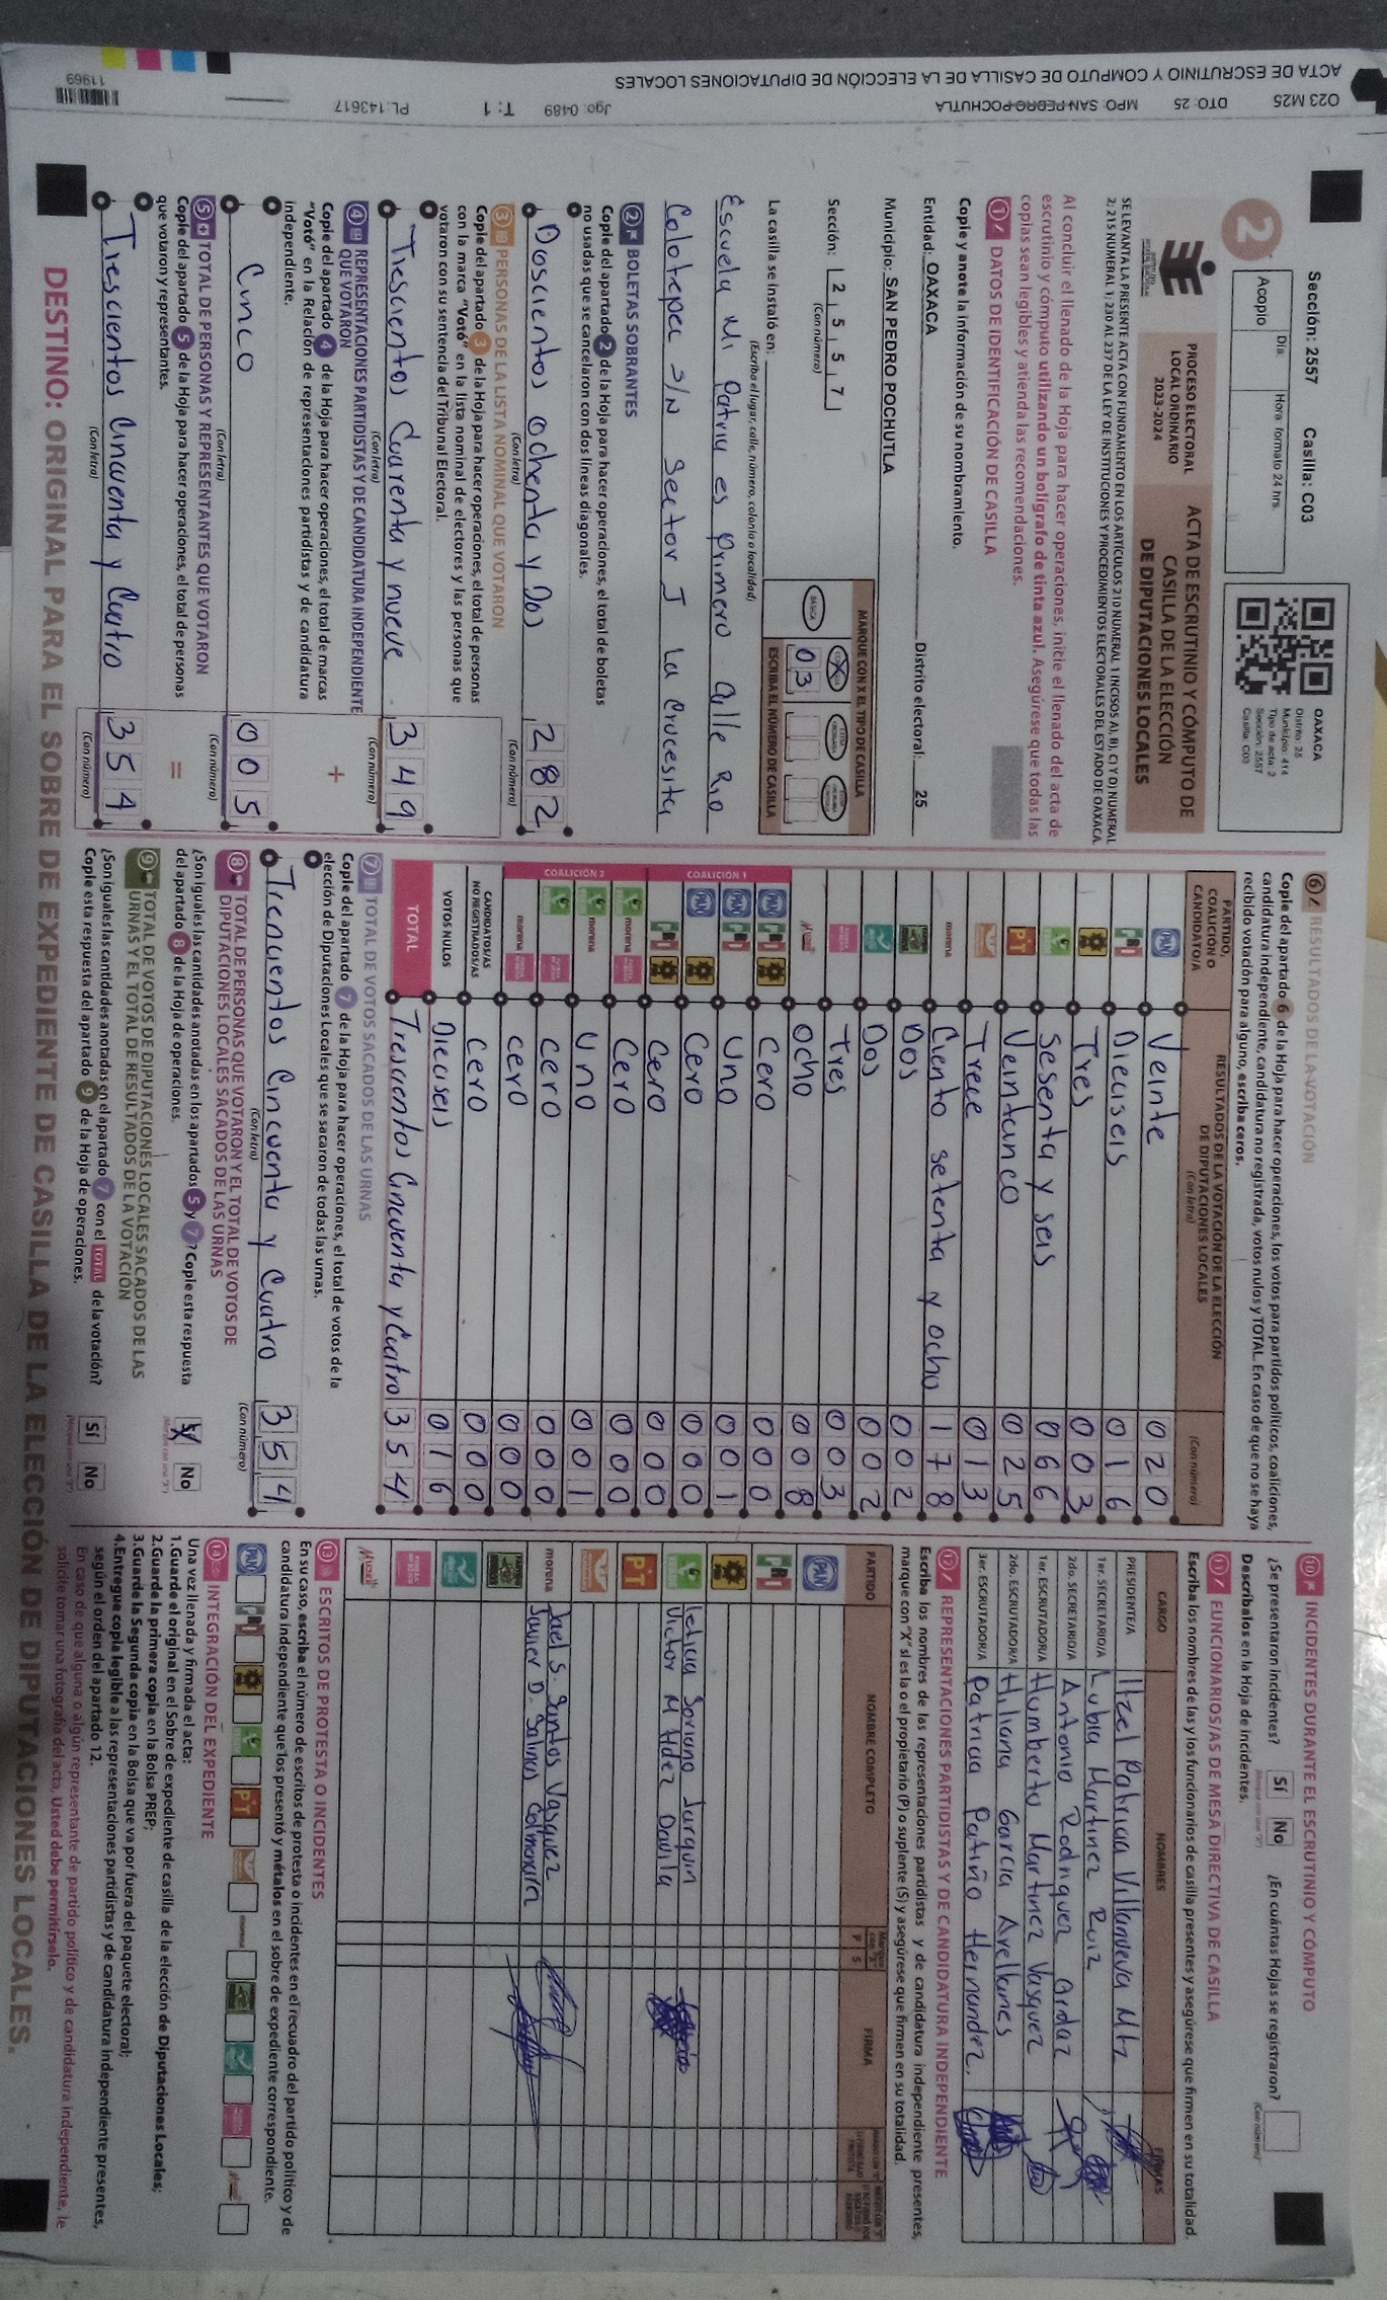 ACTA DE ESCRUTINIO Y COMPUTO DE CASILLA DE LA ELECCIÓN DE DIPUTACIONES LOCALES
O23 M25 DTO: 25 MPO: SAN PEDRO POCHUTLA Jgo: 0489 T: 1 PL: 143617
11969
Sección: 2557 Casilla: C03
2
Acopio
Día:
Hora: formato 24 hrs.
OAXACA
Distrito: 25
Municipio: 414
Tipo de acta: 2
Sección: 2557
Casilla: C03
PROCESO ELECTORAL
LOCAL ORDINARIO
2023-2024
ACTA DE ESCRUTINIO Y CÓMPUTO DE
CASILLA DE LA ELECCIÓN
DE DIPUTACIONES LOCALES
SE LEVANTA LA PRESENTE ACTA CON FUNDAMENTO EN LOS ARTÍCULOS 210 NUMERAL 1 INCISOS A), B), C) Y D) NUMERAL
2; 215 NUMERAL 1; 230 AL 237 DE LA LEY DE INSTITUCIONES Y PROCEDIMIENTOS ELECTORALES DEL ESTADO DE OAXACA.
Al concluir el llenado de la Hoja para hacer operaciones, inicie el llenado del acta de
escrutinio y cómputo utilizando un bolígrafo de tinta azul. Asegúrese que todas las
copias sean legibles y atienda las recomendaciones.
1 DATOS DE IDENTIFICACIÓN DE CASILLA
Copie y anote la información de su nombramiento.
Entidad: OAXACA Distrito electoral: 25
Municipio: SAN PEDRO POCHUTLA
Sección: 2 5 5 7
(Con número)
MARQUE CON X EL TIPO DE CASILLA
BÁSICA
03
ESCRIBA EL NÚMERO DE CASILLA
La casilla se instaló en:
(Escriba el lugar, calle, número, colonia o localidad)
Escuela Mi Patria es Primero Calle Rio
Colotepec S/N Sector I La Crucesita
2 BOLETAS SOBRANTES
Copie del apartado 2 de la Hoja para hacer operaciones, el total de boletas
no usadas que se cancelaron con dos líneas diagonales.
Doscientos ochenta y Dos 282
(Con letra) (Con número)
3 PERSONAS DE LA LISTA NOMINAL QUE VOTARON
Copie del apartado 3 de la Hoja para hacer operaciones, el total de personas
con la marca "Votó" en la lista nominal de electores y las personas que
votaron con su sentencia del Tribunal Electoral.
Trescientos Cuarenta y nueve 349
(Con letra) (Con número)
4 REPRESENTACIONES PARTIDISTAS Y DE CANDIDATURA INDEPENDIENTE
QUE VOTARON
Copie del apartado 4 de la Hoja para hacer operaciones, el total de marcas
"Votó" en la Relación de representaciones partidistas y de candidatura
independiente.
+
Cinco 005
(Con letra) (Con número)
5 TOTAL DE PERSONAS Y REPRESENTANTES QUE VOTARON
Copie del apartado 5 de la Hoja para hacer operaciones, el total de personas
que votaron y representantes.
=
Trescientos Cincuenta y Cuatro 354
(Con letra) (Con número)
6 RESULTADOS DE LA VOTACIÓN
Copie del apartado 6 de la Hoja para hacer operaciones, los votos para partidos políticos, coaliciones,
candidatura independiente, candidatura no registrada, votos nulos y TOTAL. En caso de que no se haya
recibido votación para alguno, escriba ceros.
PARTIDO,
COALICIÓN O
CANDIDATO/A
RESULTADOS DE LA VOTACIÓN DE LA ELECCIÓN
DE DIPUTACIONES LOCALES
(Con letra) (Con número)
PAN Veinte 020
PRI Dieciseis 016
Tres 003
Sesenta y seis 066
PT Veinticinco 025
Trece 013
morena Ciento setenta y ocho 178
Dos 002
Dos 002
Tres 003
Ocho 008
COALICIÓN 1
PAN PRI Cero 000
PAN PRI Uno 001
PAN Cero 000
PRI Cero 000
COALICIÓN 2
morena Cero 000
morena Uno 001
cero 000
morena cero 000
CANDIDATOS/AS
NO REGISTRADOS/AS cero 000
VOTOS NULOS Dieciseis 016
TOTAL Trescientos Cincuenta y Cuatro 354
7 TOTAL DE VOTOS SACADOS DE LAS URNAS
Copie del apartado 7 de la Hoja para hacer operaciones, el total de votos de la
elección de Diputaciones Locales que se sacaron de todas las urnas.
Trencientos Cincuenta y Cuatro 354
(Con letra) (Con número)
8 TOTAL DE PERSONAS QUE VOTARON Y EL TOTAL DE VOTOS DE
DIPUTACIONES LOCALES SACADOS DE LAS URNAS
¿Son iguales las cantidades anotadas en los apartados 5 y 7? Copie esta respuesta
del apartado 8 de la Hoja de operaciones.
Sí No
9 TOTAL DE VOTOS DE DIPUTACIONES LOCALES SACADOS DE LAS
URNAS Y EL TOTAL DE RESULTADOS DE LA VOTACIÓN
¿Son iguales las cantidades anotadas en el apartado 7 con el TOTAL de la votación?
Copie esta respuesta del apartado 9 de la Hoja de operaciones.
Sí No
10 INCIDENTES DURANTE EL ESCRUTINIO Y CÓMPUTO
¿Se presentaron incidentes? Sí No ¿En cuántas Hojas se registraron?
(Con número)
Descríbalos en la Hoja de incidentes.
11 FUNCIONARIOS/AS DE MESA DIRECTIVA DE CASILLA
Escriba los nombres de las y los funcionarios de casilla presentes y asegúrese que firmen en su totalidad.
CARGO NOMBRES FIRMAS
PRESIDENTE/A Itzel Patricia Villanueva Mtz
1er. SECRETARIO/A Lubia Martinez Ruiz
2do. SECRETARIO/A Antonio Rodriguez Ordaz
1er. ESCRUTADOR/A Humberto Martinez Vasquez
2do. ESCRUTADOR/A Hiliana Garcia Avellanes
3er. ESCRUTADOR/A Patricia Patiño Hernandez.
12 REPRESENTACIONES PARTIDISTAS Y DE CANDIDATURA INDEPENDIENTE
Escriba los nombres de las representaciones partidistas y de candidatura independiente presentes,
marque con "X" si es la o el propietario (P) o suplente (S) y asegúrese que firmen en su totalidad.
PARTIDO NOMBRE COMPLETO P S FIRMA
PAN
PRI
Leticia Soriano Jarquin
Victor M Hdez Davila
PT
morena Jael S. Santos Vasquez
Javier D. Salinas Colmenares
13 ESCRITOS DE PROTESTA O INCIDENTES
En su caso, escriba el número de escritos de protesta o incidentes en el recuadro del partido político y de
candidatura independiente que los presentó y métalos en el sobre de expediente correspondiente.
PAN PRI PT morena
INTEGRACIÓN DEL EXPEDIENTE
Una vez llenada y firmada el acta:
1.Guarde el original en el Sobre de expediente de casilla de la elección de Diputaciones Locales;
2.Guarde la primera copia en la Bolsa PREP;
3.Guarde la Segunda copia en la Bolsa que va por fuera del paquete electoral;
4.Entregue copia legible a las representaciones partidistas y de candidatura independiente presentes,
según el orden del apartado 12.
En caso de que alguna o algún representante de partido político y de candidatura independiente, le
solicite tomar una fotografía del acta, Usted debe permitírselo.
DESTINO: ORIGINAL PARA EL SOBRE DE EXPEDIENTE DE CASILLA DE LA ELECCIÓN DE DIPUTACIONES LOCALES.